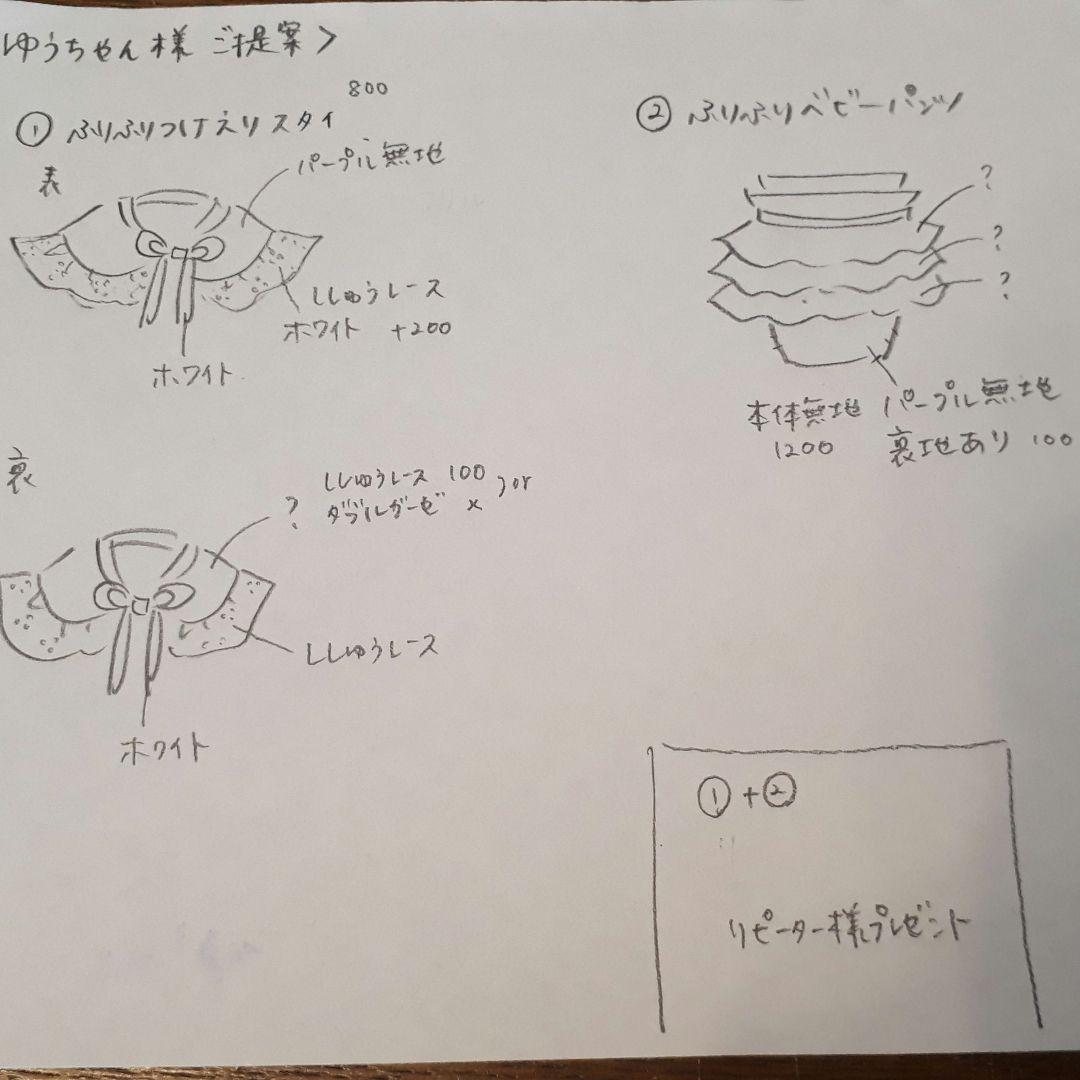 ゆうちゃん様 ご提案>
800
① ふりふりつけえりスタイ
表
パープル無地
ししゅうレース
ホワイト +200
ホワイト
裏
? ししゅうレース 100
ダブルガーゼ ×
or
ししゅうレース
ホワイト
② ふりふりベビーパンツ
?
?
?
本体無地 パープル無地
1200 裏地あり 100
①+②
リピーター様プレゼント